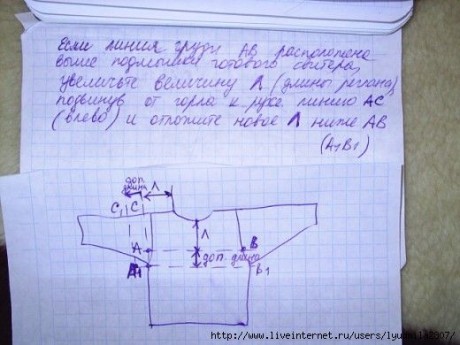 Если линия груди АВ расположена
выше подмышки готового свитера,
увеличьте величину Л (длина реглана),
подвинув от горла к рукаву линию АС
(влево) и отложите новое Л ниже АВ
(А1В1)
доп.
длина
Л
С1 С
Л
А
В
доп. длина
А1
В1
http://www.liveinternet.ru/users/lyudmila2007/